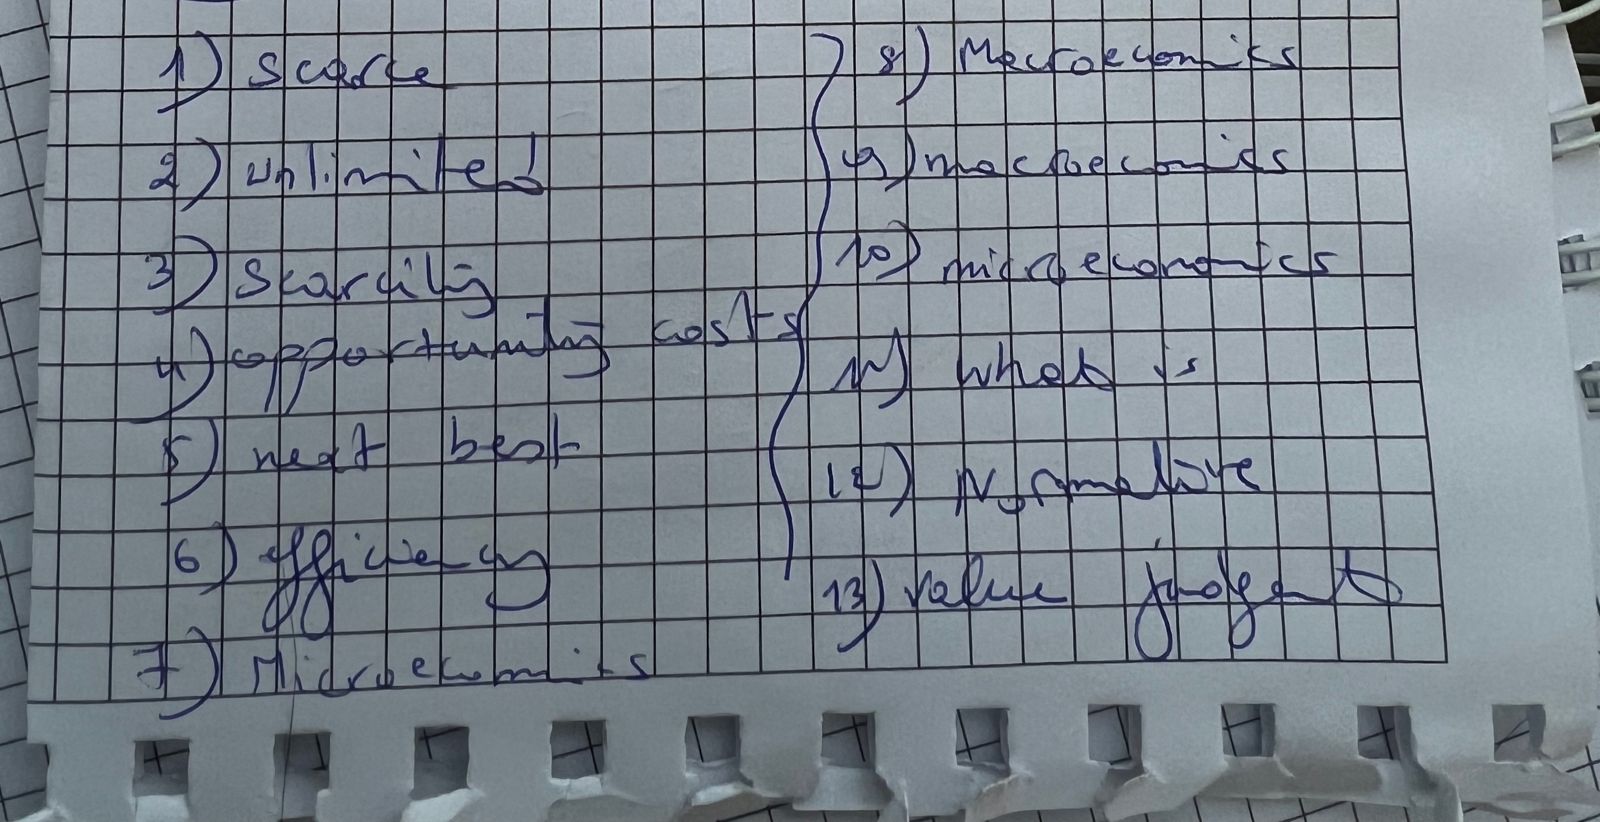 1) Scarce
2) unlimited
3) Scarcity
4) opportunity costs
5) next best
6) efficiency
7) Microeconomics
8) Macroeconomics
9) macroeconomics
10) microeconomics
11) what is
12) Normative
13) value judgent